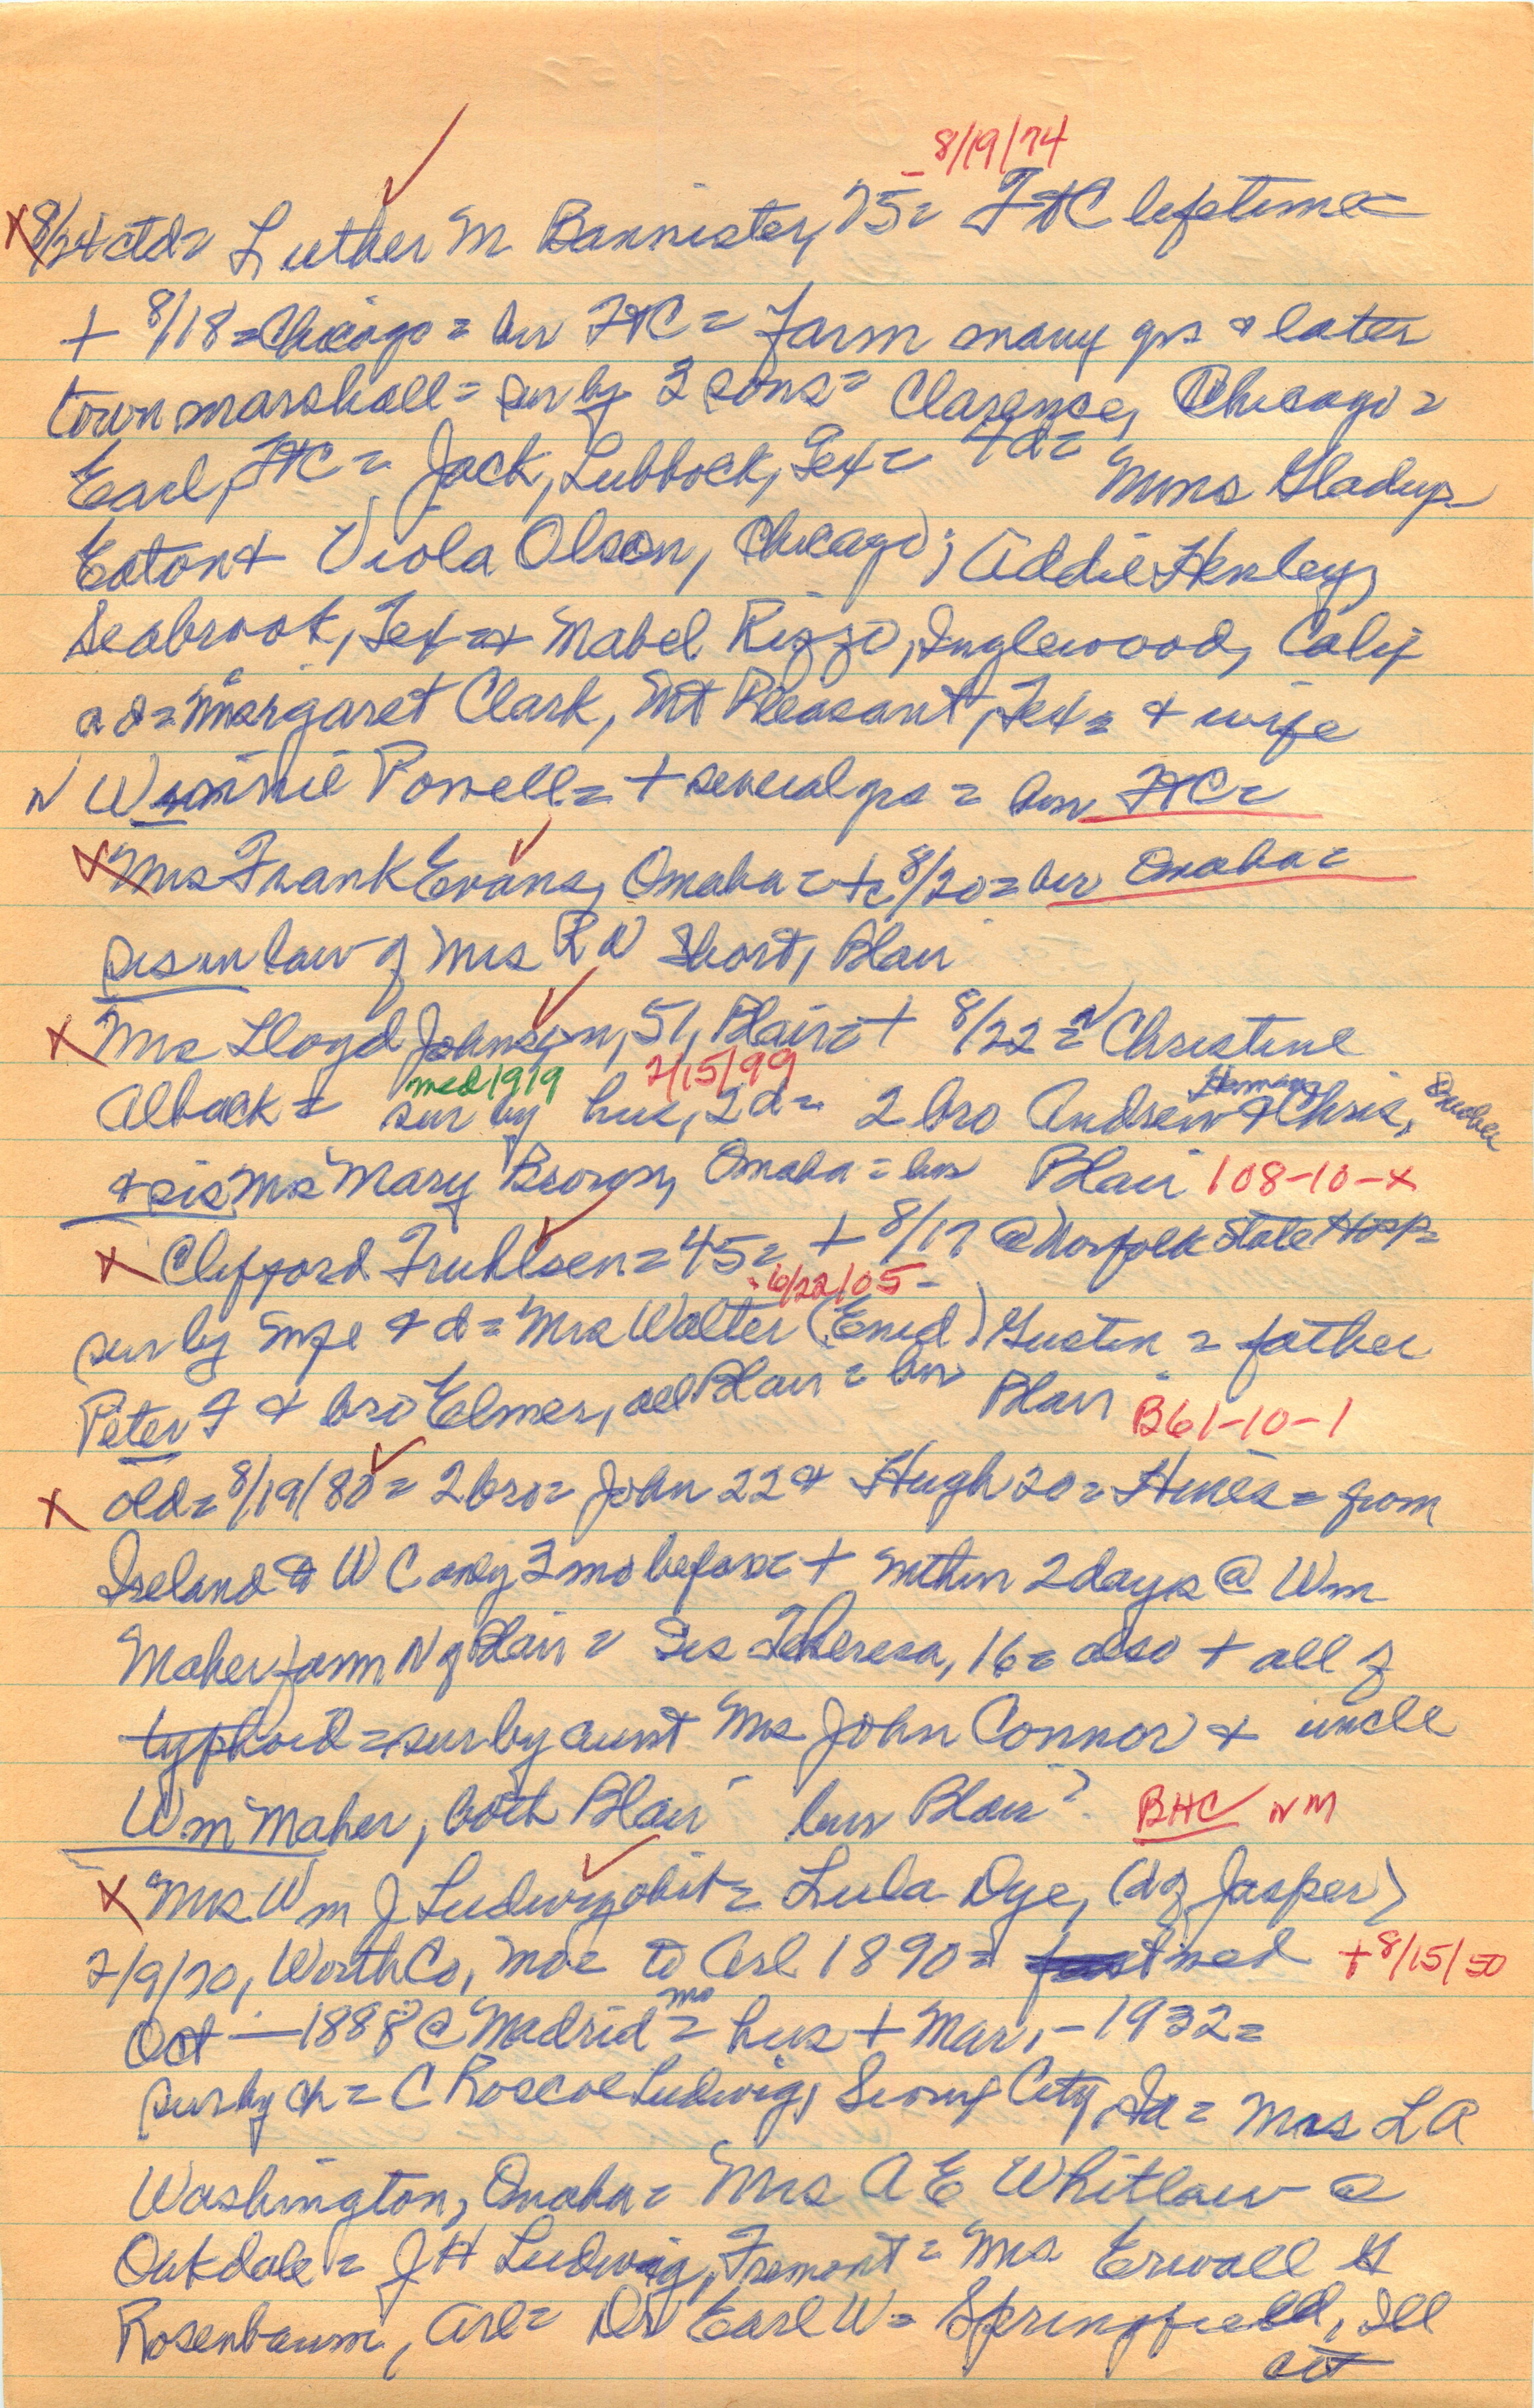 - 8/19/74
8/24 ctd= Luther M Bannister, 75= FtC lifetime=
+ 8/18=Chicago= bur FtC= farm many yrs & later
town marshall= sur by 3 sons= Clarence, Chicago=
Earl, FtC= Jack, Lubbock, Tex= 4d= Mms Gladys
Eaton & Viola Olson, Chicago; Addie Henley,
Seabrook, Tex=& Mabel Rizzo, Inglewood, Calif
a d= Margaret Clark, Mt Pleasant, Tex= & wife
N Winnie Powell= + several yrs= bur FtC=
Mrs Frank Evans, Omaha= + 8/20= bur Omaha=
sis in law of Mrs R W Short, Blair
X Mrs Lloyd Johnson, 51, Blair= + 8/22= N Christine
med 1919 2/15/99 Herman Omaha
Alback= sur by hus, 2d= 2 bro Andrew & Chris,
& sis Mrs Mary Brown, Omaha= bur Blair 108-10-x
X Clifford Fruhlsen= 45= + 8/17 @ Norfolk State Hosp=
6/22/05-
sur by wife & d= Mrs Walter (Enid) Gustin= father
Peter F & bro Elmer, all Blair= bur Blair B61-10-1
X old= 8/19/80= 2 bro= John 22 & Hugh 20= Hines= from
Ireland & W C only 3 mo before + within 2 days @ Wm
Maher farm N of Blair= Sis Theresa, 16= also + all of
typhoid= sur by aunt Mrs John Connor & uncle
Wm Maher, both Blair bur Blair? BHC N M
X Mrs Wm J Ludwig obit= Lula Dye, (d of Jasper)
2/9/70, Worth Co, Mo= to Arl 1890= med +8/15/50
mo
Oct — 1888 @ Madrid= hus + Mar, - 1932=
sur by ch= C Roscoe Ludwig, Sioux City, Ia= Mrs L A
Washington, Omaha= Mrs A E Whitlaw @
Oakdale= J H Ludwig, Fremont= Mrs Erwall G
Rosenbaum, Arl= Dr Earl W= Springfield, Ill
ct